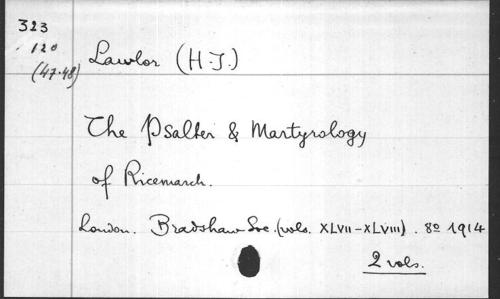 323
120
(47-48)
Lawlor (H.J.)
The Psalter & Martyrology
of Ricemarch.
London. Bradshaw Soc. (vols. XLVII-XLVIII). 8º 1914
2 vols.